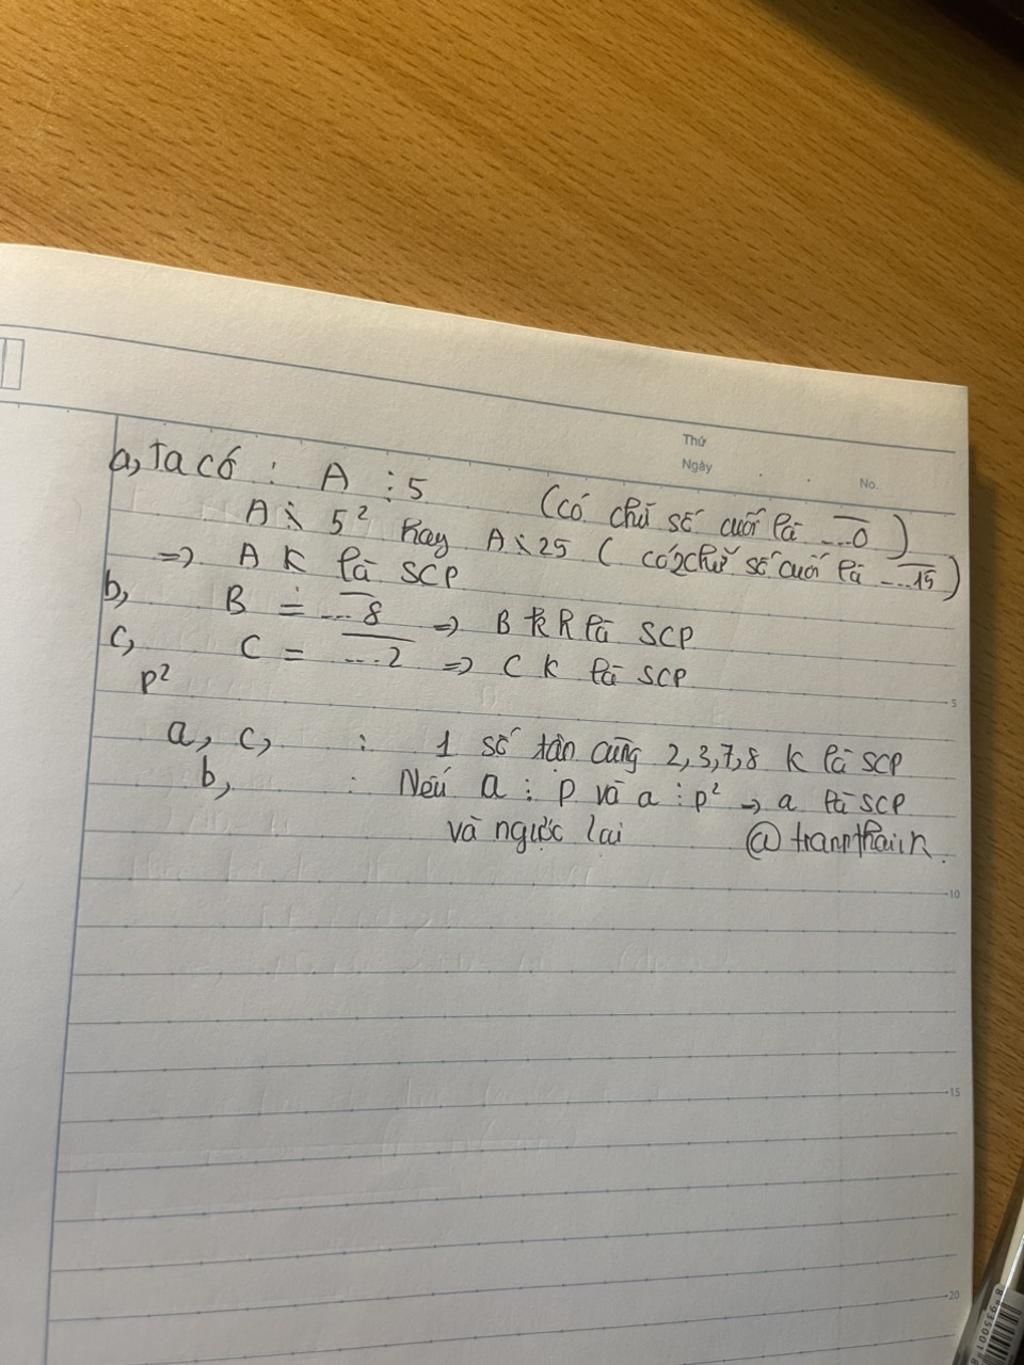 Thứ
Ngày
No.
a, Ta có : A ⋮ 5 (có chữ số cuối là ...0)
A ⋮̸ 5² hay A ⋮̸ 25 ( có 2 chữ số cuối là ...15)
=> A K là SCP
b, B = ...8 => B K là SCP
c, C = ...2 => C K là SCP
p²
a, c, : 1 số tận cùng 2, 3, 7, 8 K là SCP
b, : Nếu a ⋮ p và a ⋮ p² -> a là SCP
và ngược lại
5
10
15
20